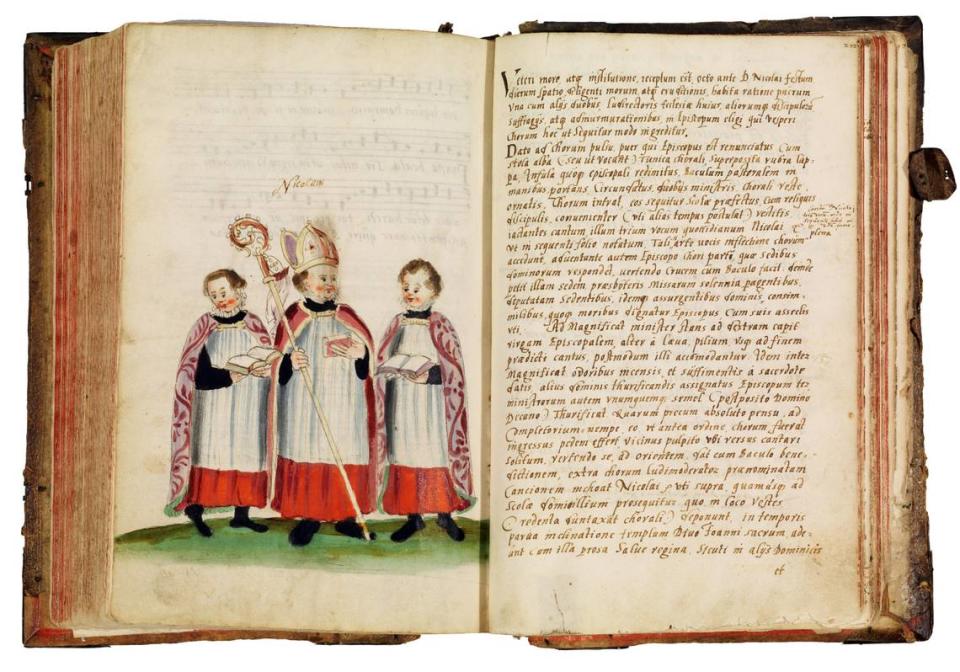 Nicolaus
Veteri more, atq̃ institutione, receptum est, octo ante D. Nicolai festum
dierum spatio, diligenti morum, atq̃ eruditionis, habita ratione puerum
vna cum alijs duobus, ludirectoris ecclesiæ huius, aliorumq̃
suffragijs, atq̃ admurmurationibus, in Episcopum eligi qui vesperi
chorum hoc ut sequitur modo ingreditur.
Dato ad chorum pulsu, puer qui Episcopus est renunciatus Cum
stola alba (seu ut vocant) tunica chorali, superposita rubra
Infula quoq̃ episcopali redimitus, Baculum pastoralem in
manibus portans, Circunseptus, duobus ministris, chorali veste
ornatis, Chorum intrat, eos sequitur Scolæ præfectus, cum reliquis
discipulis, conuenienter (vti alias tempus postulat) vestitis
iactantes cantum illum trium vocum quottidianum Nicolai
vt in sequenti folio notatum. Tali arte uocis inflectione chorum
accedunt, aduentante autem Episcopo chori parti, quæ sedibus
dominorum respondet, vertendo Crucem cum Baculo facit, deinde
petit illam sedem præsbyteris Missarum solennia pagentibus,
deputatam Sedentibus, idemq̃ assurgentibus dominis, consim-
milibus quoq̃ moribus dignatur Episcopus Cum suis asseclis
vti. Ad Magnificat minister stans ad dextram capit
virgam Episcopalem, alter à læua, pilium, vsq̃ ad finem
prædicti cantus, postmodum illi accomodantur. Idem inter
Magnificat odoribus incensis, et suffimentis à sacerdote
datis, alius dominis thurificandis assignatus Episcopum ter,
ministrorum autem vnumquemq̃ semel (postposito Domino
Decano) Thurificat. Quarum precum absoluto pensu, ad
Completorium nempe, eo, vt antea ordine, chorum fuerat
ingressus pedem effert vicinus pulpito vbi versus cantari
solitum, vertendo se, ad orientem, dat cum Baculo bene-
dictionem, extra chorum ludimoderator prænominatam
Cancionem inchoat Nicolai, vti supra, quamusq̃ ad
Scolæ domicilium prosequitur quo in loco vestes
(Credenta duntaxat chorali) deponunt, in temporis
parua inclinatione templum Diuo Joanni sacrum, ade-
unt cum illa prosa Salue regina, Sicuti in alijs Dominicis
et